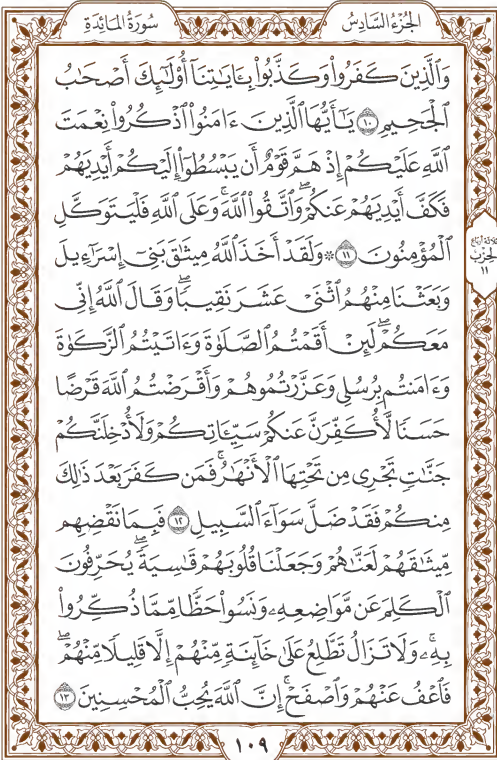 سُورَةُ المَائِدَةِ الجُزْءُ السَّادِسُ
وَٱلَّذِينَ كَفَرُواْ وَكَذَّبُواْ بِـَٔايَٰتِنَآ أُوْلَٰٓئِكَ أَصْحَٰبُ
ٱلْجَحِيمِ ١٠ يَٰٓأَيُّهَا ٱلَّذِينَ ءَامَنُواْ ٱذْكُرُواْ نِعْمَتَ
ٱللَّهِ عَلَيْكُمْ إِذْ هَمَّ قَوْمٌ أَن يَبْسُطُوٓاْ إِلَيْكُمْ أَيْدِيَهُمْ
فَكَفَّ أَيْدِيَهُمْ عَنكُمْۖ وَٱتَّقُواْ ٱللَّهَۚ وَعَلَى ٱللَّهِ فَلْيَتَوَكَّلِ
ٱلْمُؤْمِنُونَ ١١ ۞ وَلَقَدْ أَخَذَ ٱللَّهُ مِيثَٰقَ بَنِيٓ إِسْرَٰٓءِيلَ
وَبَعَثْنَا مِنْهُمُ ٱثْنَيْ عَشَرَ نَقِيبٗاۖ وَقَالَ ٱللَّهُ إِنِّي
مَعَكُمْۖ لَئِنْ أَقَمْتُمُ ٱلصَّلَوٰةَ وَءَاتَيْتُمُ ٱلزَّكَوٰةَ
وَءَامَنتُم بِرُسُلِي وَعَزَّرْتُمُوهُمْ وَأَقْرَضْتُمُ ٱللَّهَ قَرْضًا
حَسَنٗا لَّأُكَفِّرَنَّ عَنكُمْ سَيِّـَٔاتِكُمْ وَلَأُدْخِلَنَّكُمْ
جَنَّٰتٖ تَجْرِي مِن تَحْتِهَا ٱلْأَنْهَٰرُۚ فَمَن كَفَرَ بَعْدَ ذَٰلِكَ
مِنكُمْ فَقَدْ ضَلَّ سَوَآءَ ٱلسَّبِيلِ ١٢ فَبِمَا نَقْضِهِم
مِّيثَٰقَهُمْ لَعَنَّٰهُمْ وَجَعَلْنَا قُلُوبَهُمْ قَٰسِيَةٗۖ يُحَرِّفُونَ
ٱلْكَلِمَ عَن مَّوَاضِعِهِۦ وَنَسُواْ حَظّٗا مِّمَّا ذُكِّرُواْ
بِهِۦۚ وَلَا تَزَالُ تَطَّلِعُ عَلَىٰ خَآئِنَةٖ مِّنْهُمْ إِلَّا قَلِيلٗا مِّنْهُمْۖ
فَٱعْفُ عَنْهُمْ وَٱصْفَحْۚ إِنَّ ٱللَّهَ يُحِبُّ ٱلْمُحْسِنِينَ ١٣
ثلاثة أرباع
الحزب
١١
١٠٩